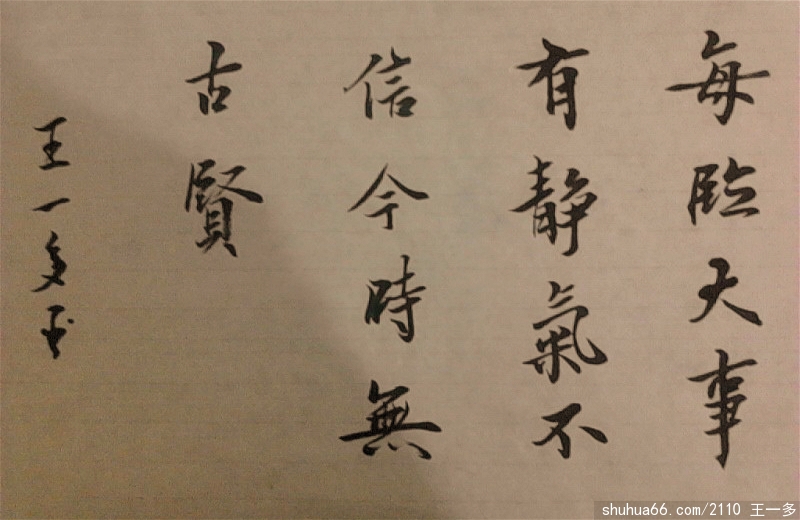 每臨大事
有静氣不
信今時無
古賢
王一多书
shuhua66.com/2110 王一多